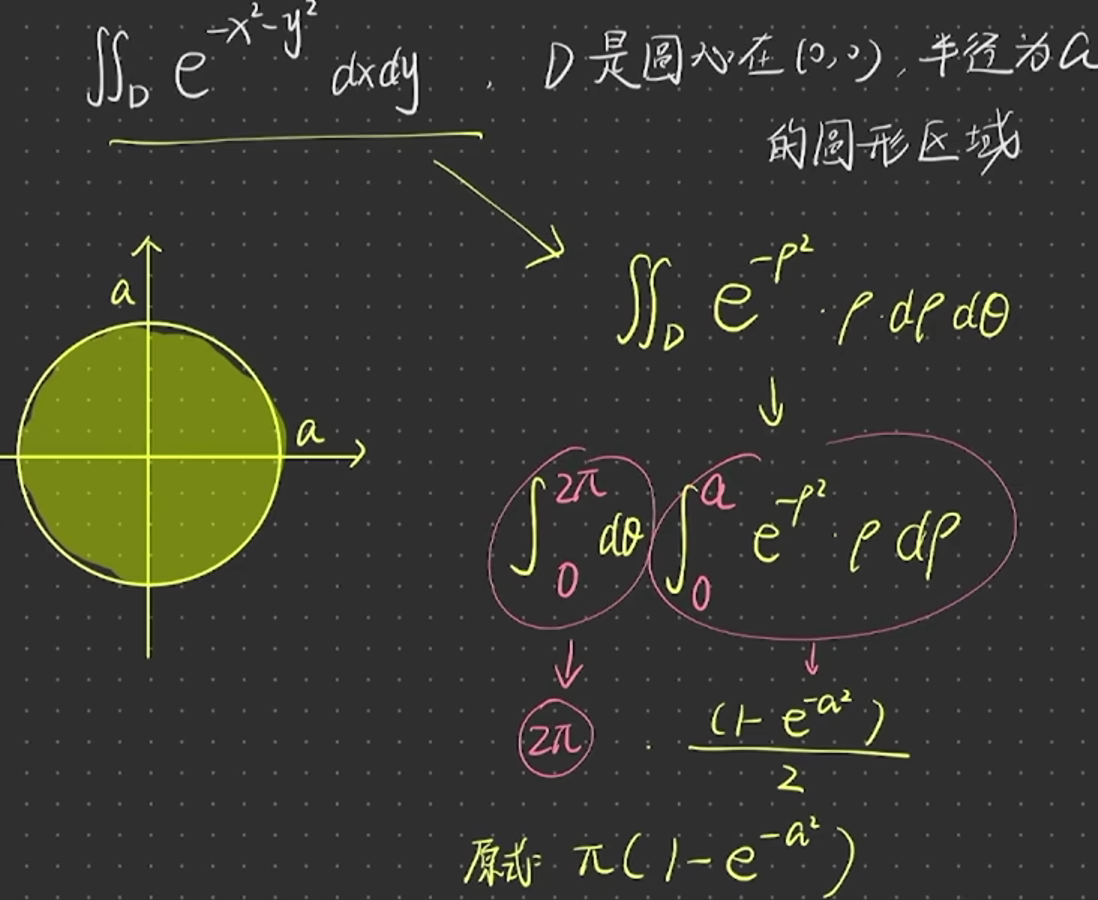 ∬_D e^{-x²-y²} dxdy , D是圆心在(0,0),半径为a
的圆形区域
a
a
∬_D e^{-ρ²} · ρ dρ dθ
∫_0^{2π} dθ ∫_0^a e^{-ρ²} · ρ dρ
2π · (1-e^{-a²})/2
原式: π(1-e^{-a²})